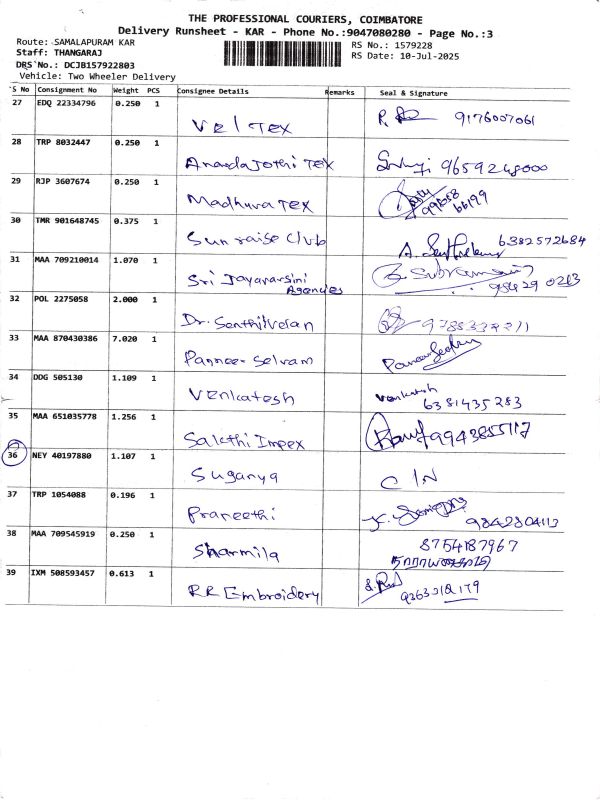 THE PROFESSIONAL COURIERS, COIMBATORE
Delivery Runsheet - KAR - Phone No.:9047080280 - Page No.:3
Route: SAMALAPURAM KAR
RS No.: 1579228
Staff: THANGARAJ
RS Date: 10-Jul-2025
DRS No.: DCJB157922803
Vehicle: Two Wheeler Delivery
S No Consignment No Weight PCS Consignee Details Remarks Seal & Signature
27 EDQ 22334796 0.250 1 Vel Tex 9176007061
28 TRP 8032447 0.250 1 Ananda Jothi Tex 9659248000
29 RJP 3607674 0.250 1 Madhura Tex
30 TMR 901648745 0.375 1 Sun raise Club 6382572684
31 MAA 709210014 1.070 1 Sri Jayavarsini
Agencies
32 POL 2275058 2.000 1 Dr. Senthilvelan
33 MAA 870430386 7.020 1 Panneer Selvam
34 DDG 505130 1.109 1 Venkatesh Venkatesh
6381435283
35 MAA 651035778 1.256 1 Sakthi Impex 9943855117
36 NEY 40197880 1.107 1 Suganya C/N
37 TRP 1054088 0.196 1 Praneethi 9842804113
38 MAA 709545919 0.250 1 Sharmila 8754187967
39 IXM 508593457 0.613 1 RR Embroidery